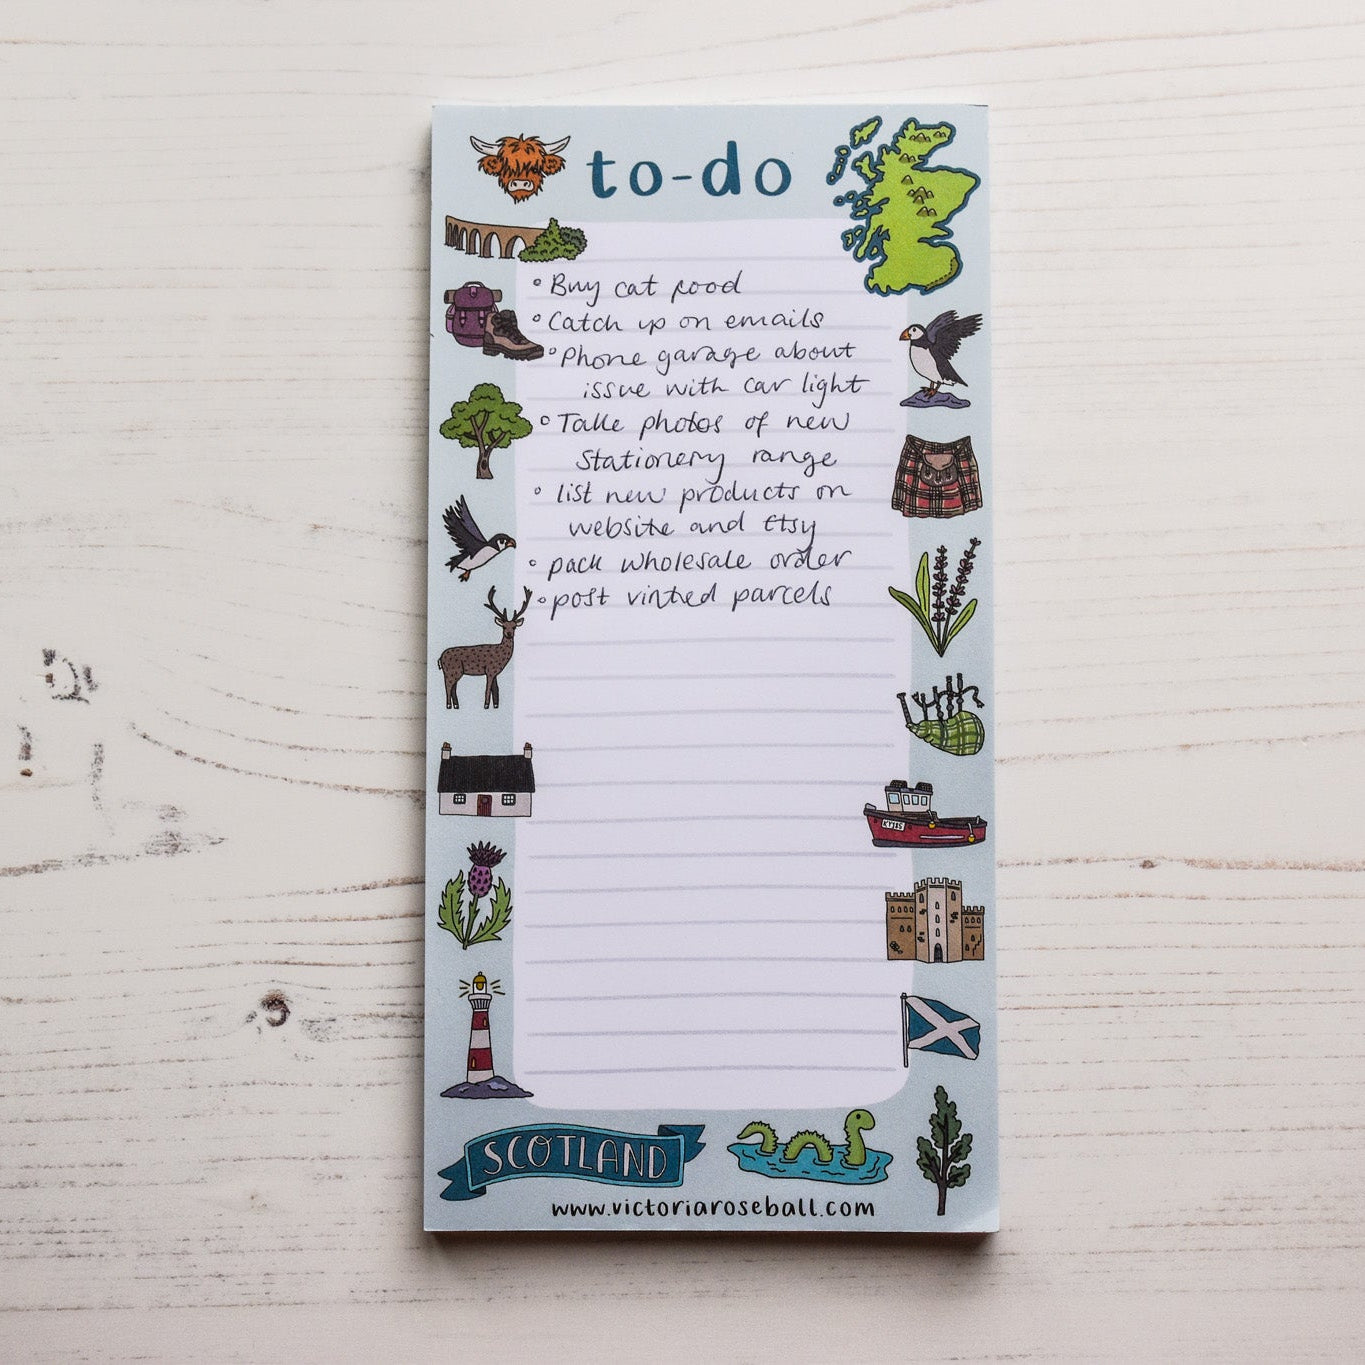 to-do
° Buy cat food
° Catch up on emails
° Phone garage about
issue with car light
° Take photos of new
Stationery range
° list new products on
website and Etsy
° pack wholesale order
° post vinted parcels
SCOTLAND
www.victoriaroseball.com